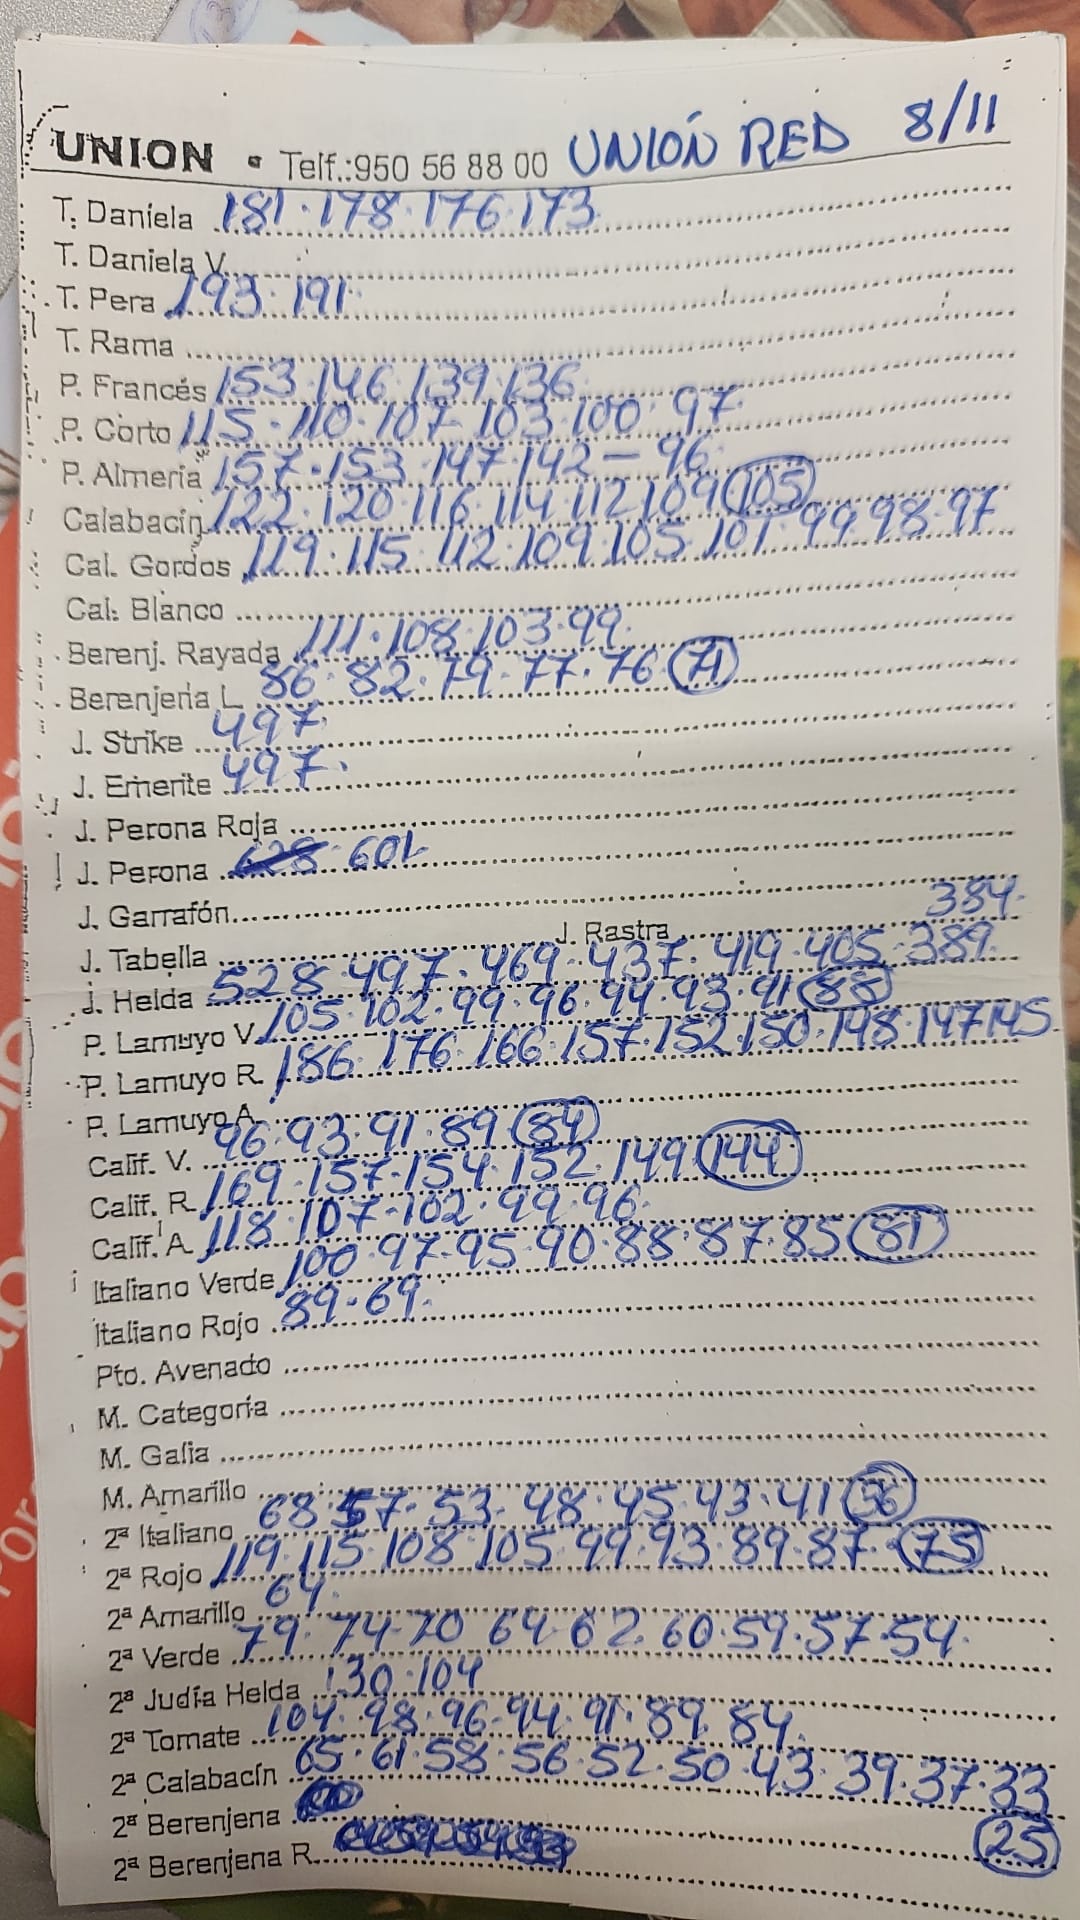 UNION • Telf.:950 56 88 00 UNIÓN RED 8/11
T. Daniela 181·178·176·173
T. Daniela V.
T. Pera 193·191
T. Rama
P. Francés 153·146·139·136
P. Corto 115·110·107·103·100·97
P. Almería 157·153·147·142-96
Calabacín 122·120·116·114·112·109 105
Cal. Gordos 119·115·112·109·105·101·99·98·97
Cal. Blanco
Berenj. Rayada 111·108·103·99
Berenjena L. 86·82·79·77·76 71
J. Strike 497
J. Emerite 497
J. Perona Roja
J. Perona 628·601
J. Garrafón
J. Tabella J. Rastra 384
J. Helda 528·497·469·437·419·405·389
P. Lamuyo V. 105·102·99·96·94·93·91 88
P. Lamuyo R. 186·176·166·157·152·150·148·147·145
P. Lamuyo A.
Calif. V. 96·93·91·89 84
Calif. R. 169·157·154·152·149 144
Calif. A. 118·107·102·99·96
Italiano Verde 100·97·95·90·88·87·85 81
Italiano Rojo 89·69
Pto. Avenado
M. Categoría
M. Galia
M. Amarillo
2ª Italiano 68·57·53·48·45·43·41 36
2ª Rojo 119·115·108·105·99·93·89·87 75
2ª Amarillo 64
2ª Verde 79·74·70 64·62·60·59·57·54
2ª Judía Helda 130·104
2ª Tomate 104·98·96·94·91·89·84
2ª Calabacín 65·61·58·56·52·50·43·39·37·33
2ª Berenjena 25
2ª Berenjena R.